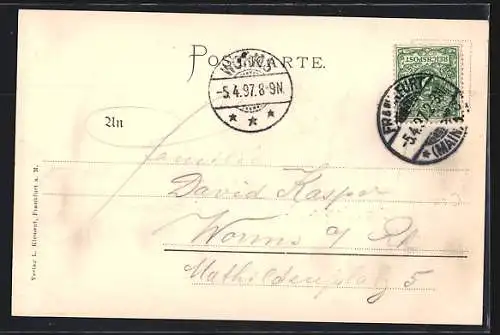 POSTKARTE.
REICHSPOST
WORMS
-5.4.97.8-9N.
* * *
FRANKFURT
-5.4.97
* (MAIN)
An
Familie
David Kaspar
Worms a/ Rh
Mathildenplatz 5
Verlag L. Klement, Frankfurt a. M.